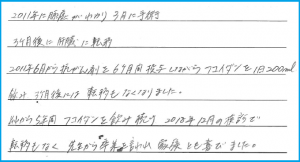 2011年に肺腺がんがわかり 3月に手術
3ヶ月後に肝臓に転移
2011年6月から抗がん剤を6ヶ月間投与しながらフコイダンを1日200ml
飲み 3ヶ月後には 転移もなくなりました。
それから5年間 フコイダンを飲み続け 2018年12月の検診で
転移もなく 先生から卒業と言われ 家族とも喜びました。